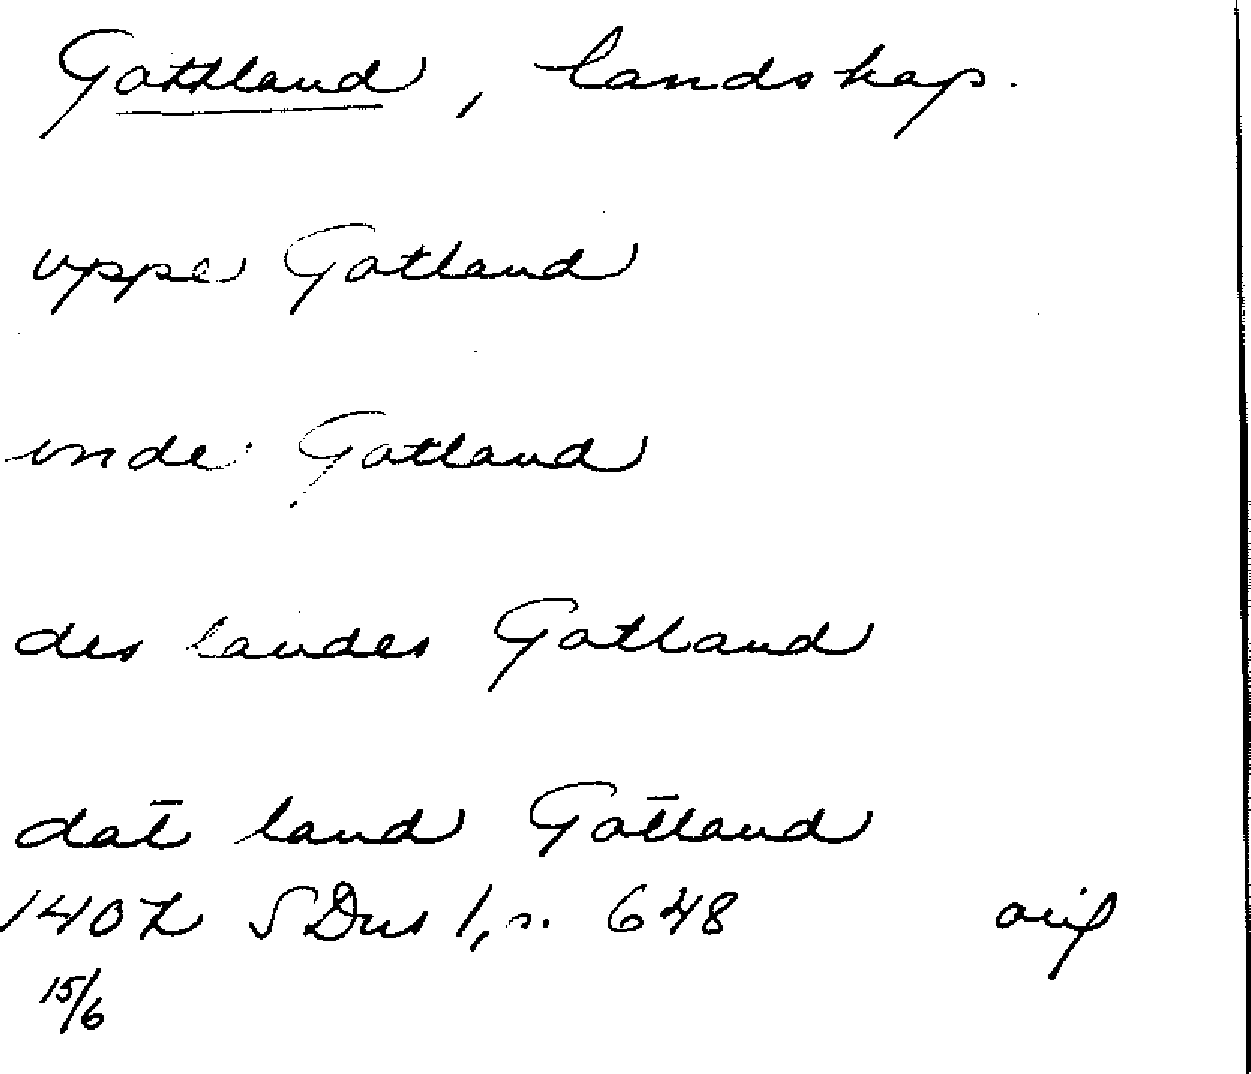 Gottland, landskap.
uppe Gotland
vnde Gotland
des landes Gotland
dat land Gotland
1407 SDns 1, s. 648 orig
15/6